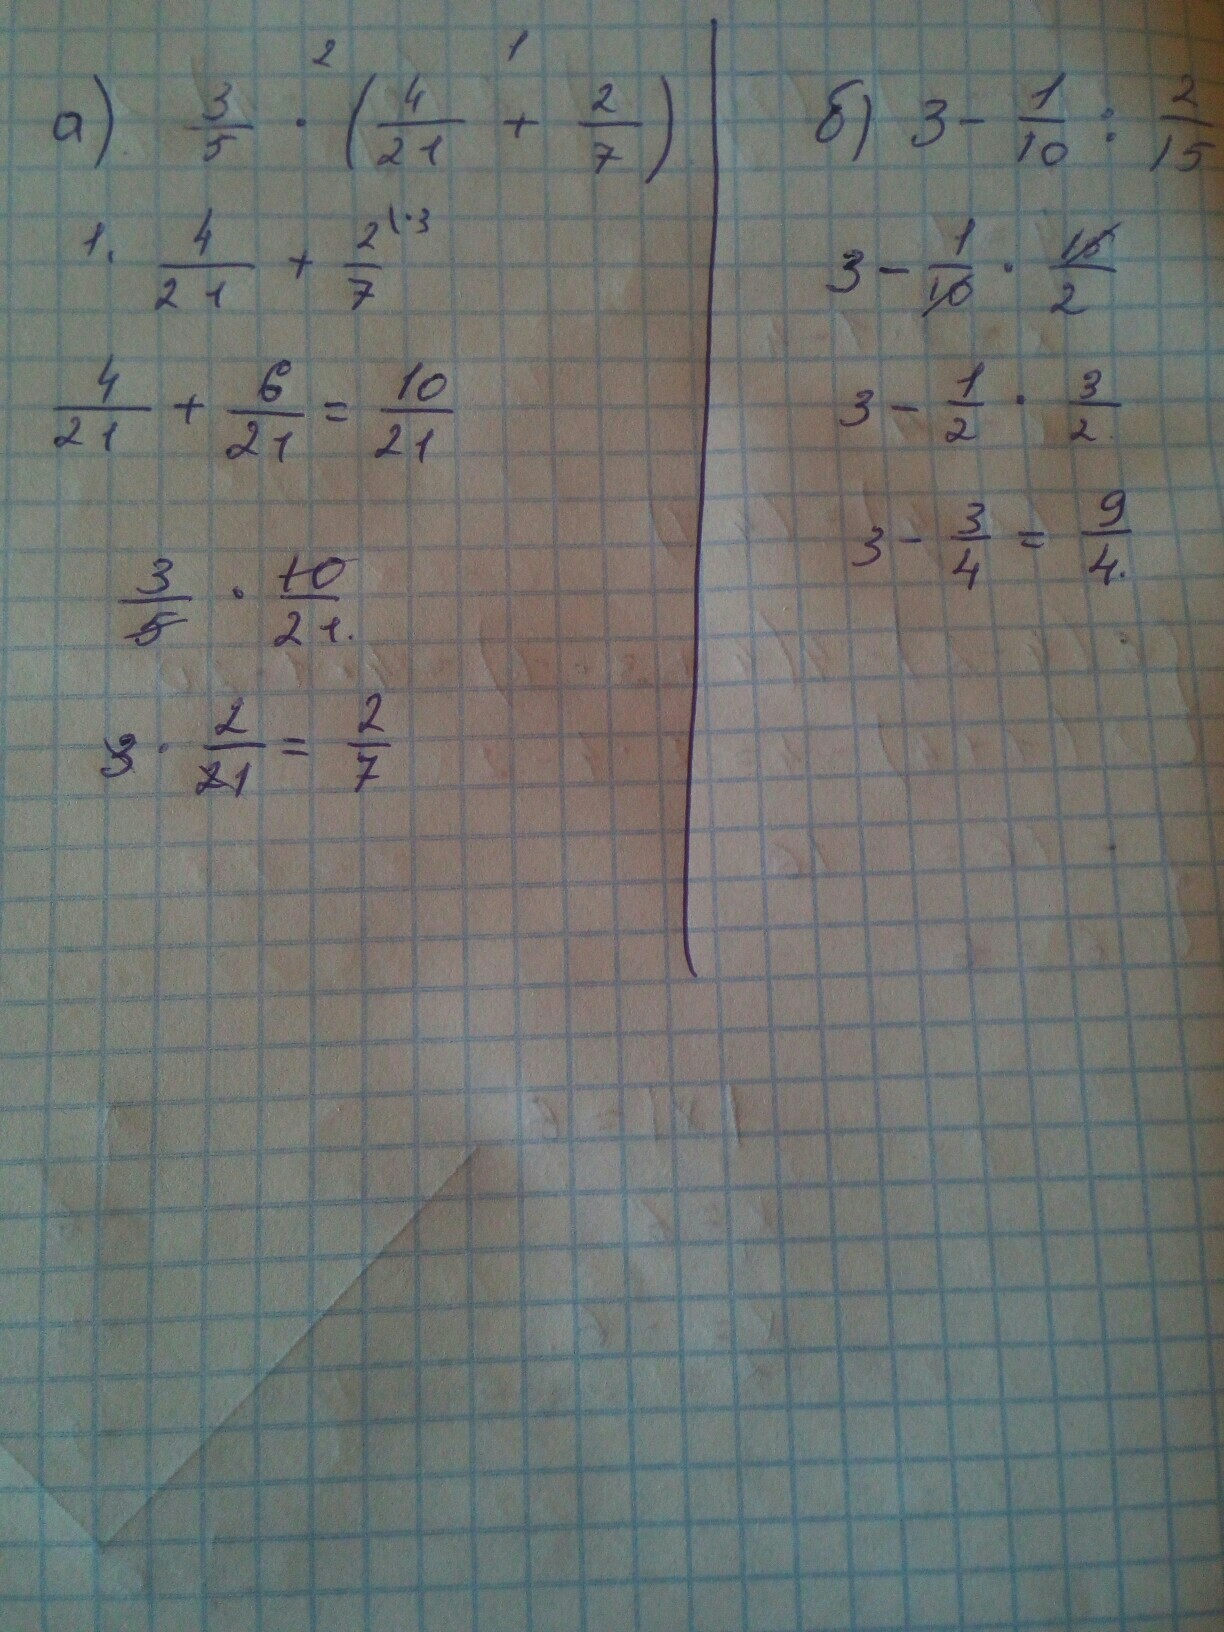 2 1
а) 3/5 · (4/21 + 2/7)
1. 4/21 + 2/7 \·3
4/21 + 6/21 = 10/21
3/5 · 10/21.
3 · 2/21 = 2/7
б) 3 - 1/10 : 2/15
3 - 1/10 · 15/2
3 - 1/2 · 3/2.
3 - 3/4 = 9/4.